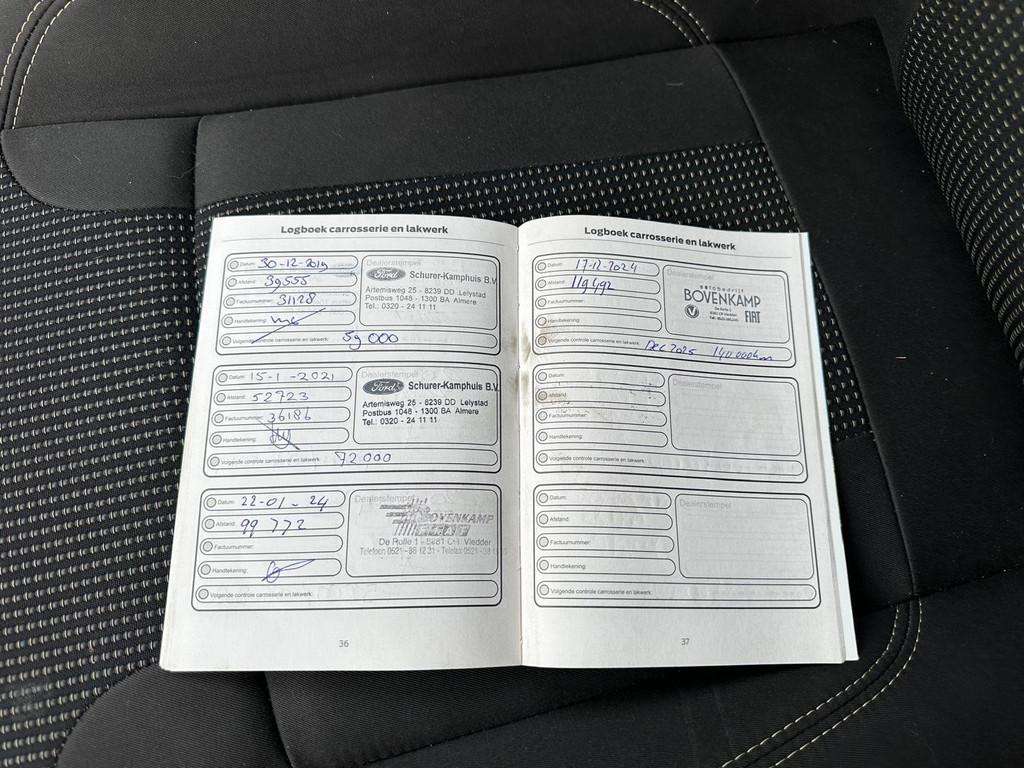 Logboek carrosserie en lakwerk
Datum: 30-12-2019
Afstand: 39555
Factuurnummer: 31128
Handtekening:
Volgende controle carrosserie en lakwerk: 59 000
Dealerstempel
Ford Schurer-Kamphuis B.V.
Artemisweg 25 - 8239 DD Lelystad
Postbus 1048 - 1300 BA Almere
Tel.: 0320 - 24 11 11
Datum: 15-1-2021
Afstand: 52723
Factuurnummer: 36186
Handtekening:
Volgende controle carrosserie en lakwerk: 72000
Dealerstempel
Ford Schurer-Kamphuis B.V.
Artemisweg 25 - 8239 DD Lelystad
Postbus 1048 - 1300 BA Almere
Tel.: 0320 - 24 11 11
Datum: 22-01-24
Afstand: 99 772
Factuurnummer:
Handtekening:
Volgende controle carrosserie en lakwerk:
Dealerstempel
BOVENKAMP
De Rolle 1 - 8381 CH Vledder
36
Logboek carrosserie en lakwerk
Datum: 17-12-2024
Afstand: 119492
Factuurnummer:
Handtekening:
Volgende controle carrosserie en lakwerk: Dec 2025 140.000km
Dealerstempel
autobedrijf
BOVENKAMP
FIAT
Datum:
Afstand:
Factuurnummer:
Handtekening:
Volgende controle carrosserie en lakwerk:
Dealerstempel
Datum:
Afstand:
Factuurnummer:
Handtekening:
Volgende controle carrosserie en lakwerk:
Dealerstempel
37